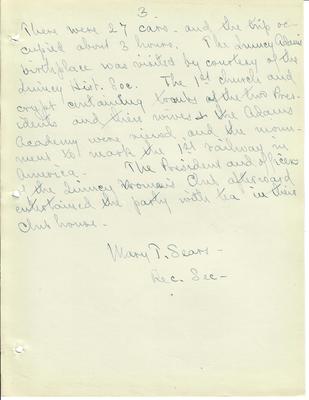 3.
There were 27 cars - and the trip oc-
cupied about 3 hours. The Quincy Adams
birthplace was visited by courtesy of the
Quincy Hist. Soc. The 1st church and
crypt containing tombs of the two Pres-
idents and their wives & the Adams
Academy were viewed and the monu-
ment to mark the 1st railway in
America. The President and officers
of the Quincy Women's Club afterward
entertained the party with tea in their
Club house.
Mary T. Sears -
Rec. Sec -